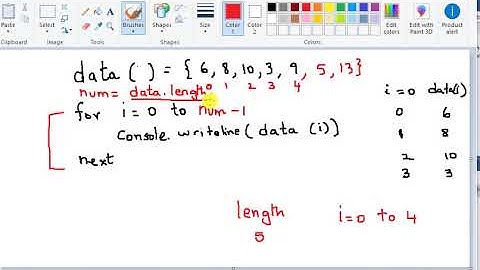 Paste
Select
Image
Brushes
Shapes
Size
Color 1
Color 2
Edit colors
Edit with Paint 3D
Clipboard
Tools
Colors
data ( ) = { 6, 8, 10, 3, 9, 5, 13}
num = data.length 0 1 2 3 4
for i = 0 to num -1
Console. writeline (data (i))
next
i = 0 data(i)
0 6
1 8
2 10
3 3
length
5
i=0 to 4